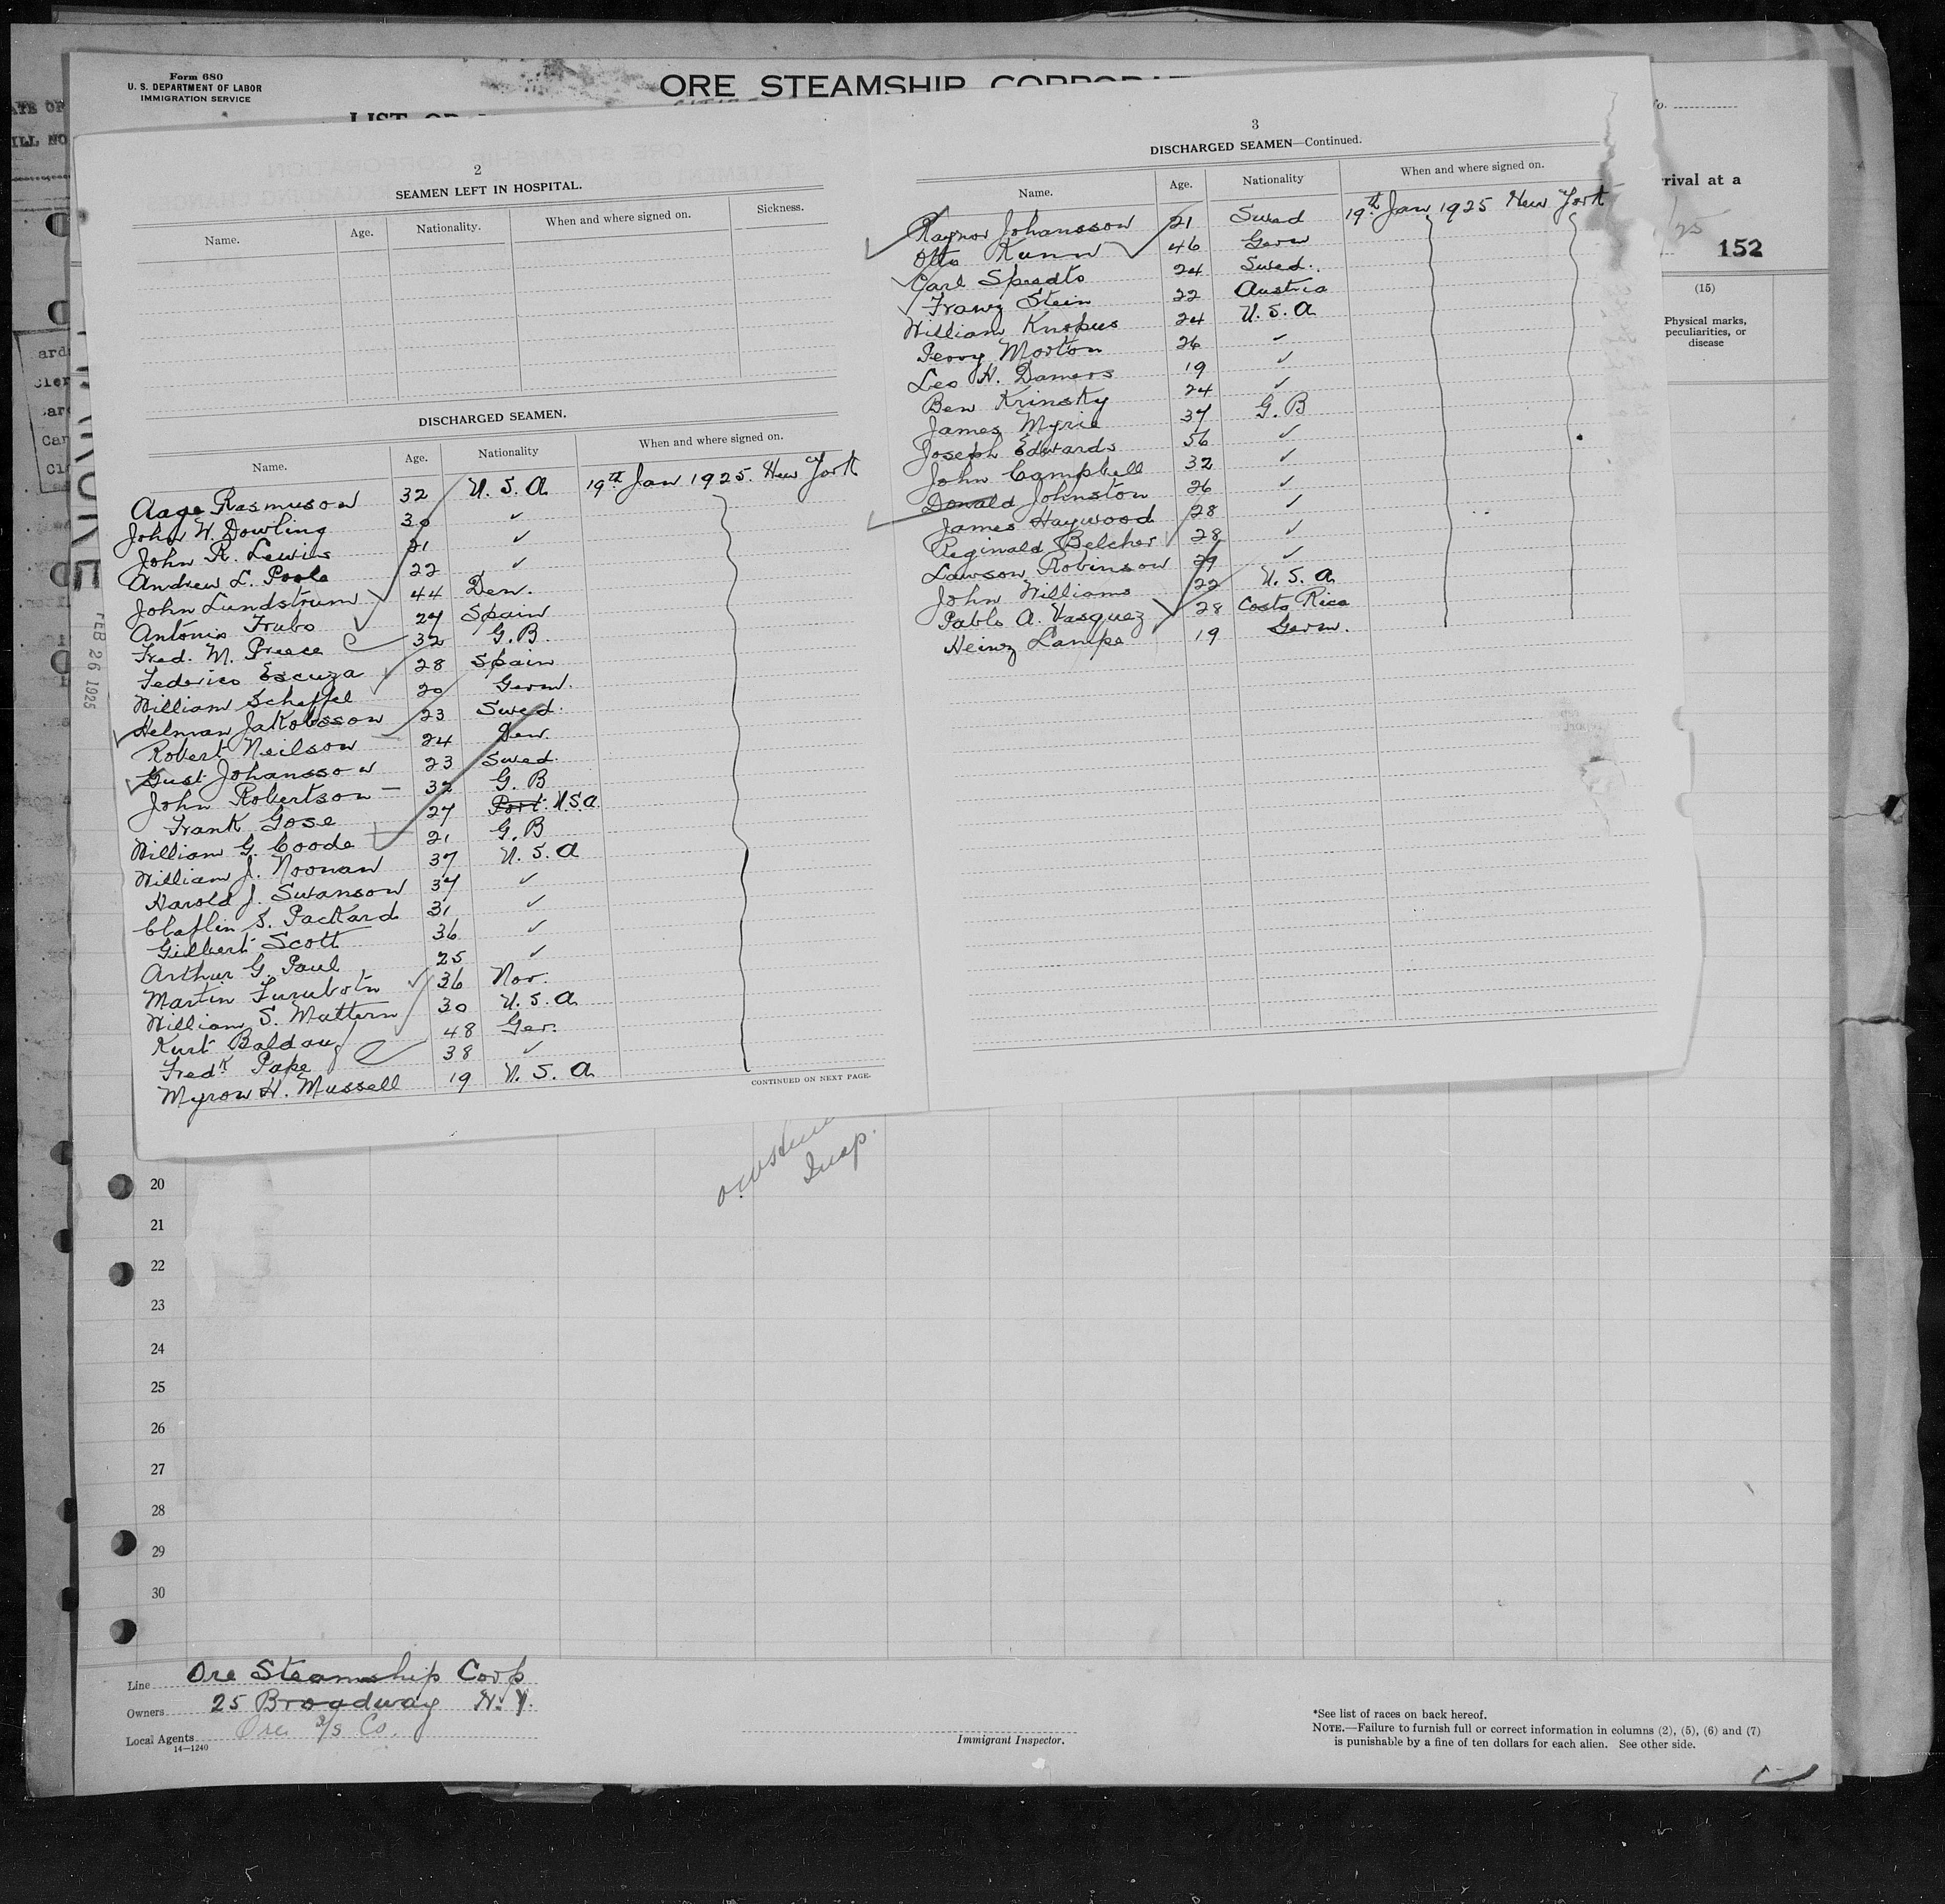 Form 680
U. S. DEPARTMENT OF LABOR
IMMIGRATION SERVICE
ORE STEAMSHIP
LIST OR
2
SEAMEN LEFT IN HOSPITAL.
Name. Age. Nationality. When and where signed on. Sickness.
DISCHARGED SEAMEN.
Name. Age. Nationality When and where signed on.
Aage Rasmuson 32 U. S. A 19th Jan 1925. New York
John W. Dowling 30 ✓
John R. Lewis 21 ✓
Andrew L. Poole 22 ✓
John Lundstrum 44 Den.
Antonio Trubo 27 Spain
Fred. M. Preece 32 G. B.
Federico Escuza 28 Spain
William Scheffel 20 Germ.
Helman Jakobsson 23 Swed.
Robert Neilson 24 Den.
Gust Johansson 23 Swed.
John Robertson 32 G. B
Frank Gose 27 Port. U.S.A.
William G. Coode 21 G. B
William J. Noonan 37 U. S. A
Harold J. Swanson 37 ✓
Claflin S. Packard 31 ✓
Gilbert Scott 36 ✓
Arthur G. Paul 25 ✓
Martin Furubotn 36 Nor.
William S. Mattern 30 U. S. A
Kurt Baldauf 48 Ger.
Fredk Pape 38 ✓
Myron H. Mussell 19 U. S. A
CONTINUED ON NEXT PAGE.
3
DISCHARGED SEAMEN—Continued.
Name. Age. Nationality When and where signed on.
Ragnor Johansson 21 Swed 19th Jan 1925 New York
Otto Kunn 46 Germ
Carl Spredto 24 Swed.
Franz Stein 22 Austria
William Knopus 24 U. S. A
Perry Morton 26 ✓
Leo H. Damers 19 ✓
Ben Krinsky 24 ✓
James Myrie 37 G. B
Joseph Edwards 56 ✓
John Campbell 32 ✓
Donald Johnston 26 ✓
James Haywood 28 ✓
Reginald Belcher 28 ✓
Lawson Robinson 29 ✓
John Williams 22 U. S. A
Pablo A. Vasquez 28 Costa Rica
Heinz Lampe 19 Germ.
rival at a
152
(15)
Physical marks,
peculiarities, or
disease
FEB 26 1925
Insp.
20
21
22
23
24
25
26
27
28
29
30
Line Ore Steamship Corp
Owners 25 Broadway N.Y.
Local Agents Ore S/S Co.
14—1240
Immigrant Inspector.
*See list of races on back hereof.
NOTE.—Failure to furnish full or correct information in columns (2), (5), (6) and (7)
is punishable by a fine of ten dollars for each alien. See other side.